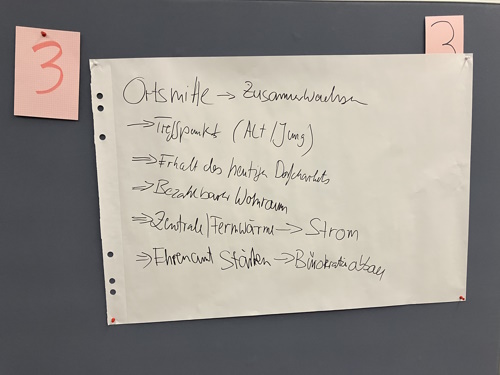 3
3
Ortsmitte → Zusammenwachsen
→ Treffpunkt (Alt/Jung)
⇒ Erhalt des heutigen Dorfcharakters
⇒ Bezahlbarer Wohnraum
⇒ Zentrale/Fernwärme → Strom
⇒ Ehrenamt Stärken → Bürokratieabbau